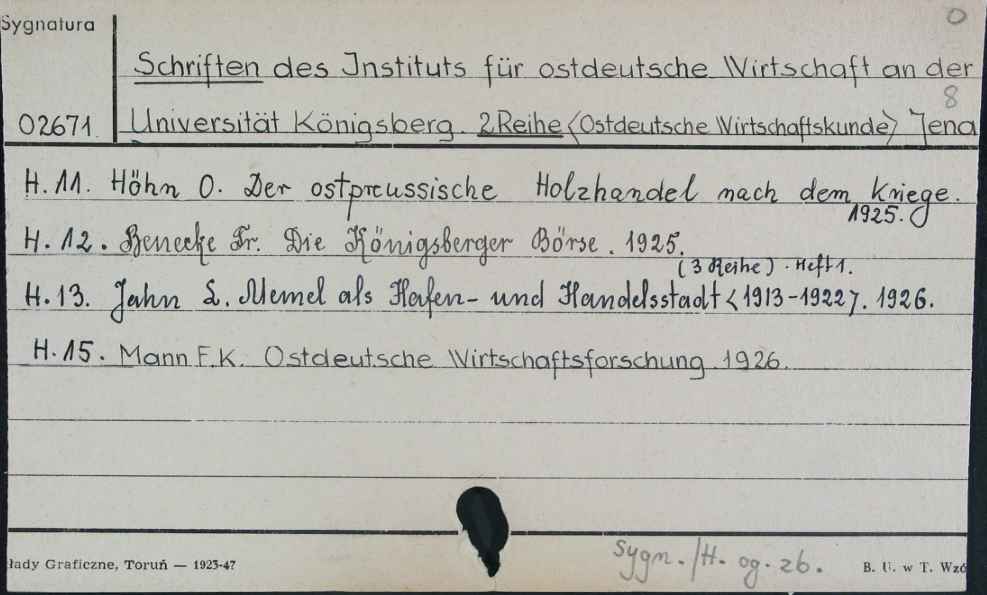 Sygnatura
0
Schriften des Instituts für ostdeutsche Wirtschaft an der
8
02671. Universität Königsberg. 2Reihe <Ostdeutsche Wirtschaftskunde> Jena
H. 11. Höhn O. Der ostpreussische Holzhandel nach dem Kriege.
1925.
H. 12. Benecke Fr. Die Königsberger Börse. 1925.
(3 Reihe). Heft 1.
H. 13. Jahn L. Memel als Hafen- und Handelsstadt <1913-1922>. 1926.
H. 15. Mann F.K. Ostdeutsche Wirtschaftsforschung 1926.
sygn./H. og. zb.
łady Graficzne, Toruń — 1923-47
B. U. w T. Wzó